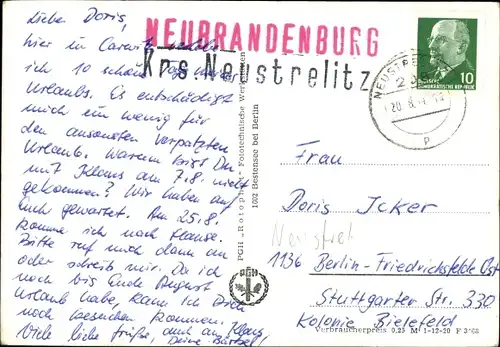 Liebe Doris,
hier in Carwitz
ich 10 schöne Tage
Urlaubs. Es entschädigt
mich ein wenig für
den ansonsten verpatzten
Urlaub. Warum bist Du
mit Klaus am 7.8. nicht
gekommen? Wir haben auf
Euch gewartet. Am 25.8.
komme ich nach Hause.
Bitte ruf mich dann an
oder schreib mir. Da ich
noch bis Ende August
Urlaub habe, kann ich Dich
noch besuchen kommen.
Viele liebe Grüße, auch an Klaus,
Deine Bärbel!
NEUBRANDENBURG
Krs Neustrelitz
PGH „Rotophot“ Fototechnische Werkstätten
1602 Bestensee bei Berlin
PGH
10
DEUTSCHE
DEMOKRATISCHE REPUBLIK
Frau
Doris Icker
1136 Berlin-Friedrichsfelde Ost
Stuttgarter Str. 330
Kolonie Bielefeld
Verbraucherpreis 0,25 M 1-12-20 F 3/68